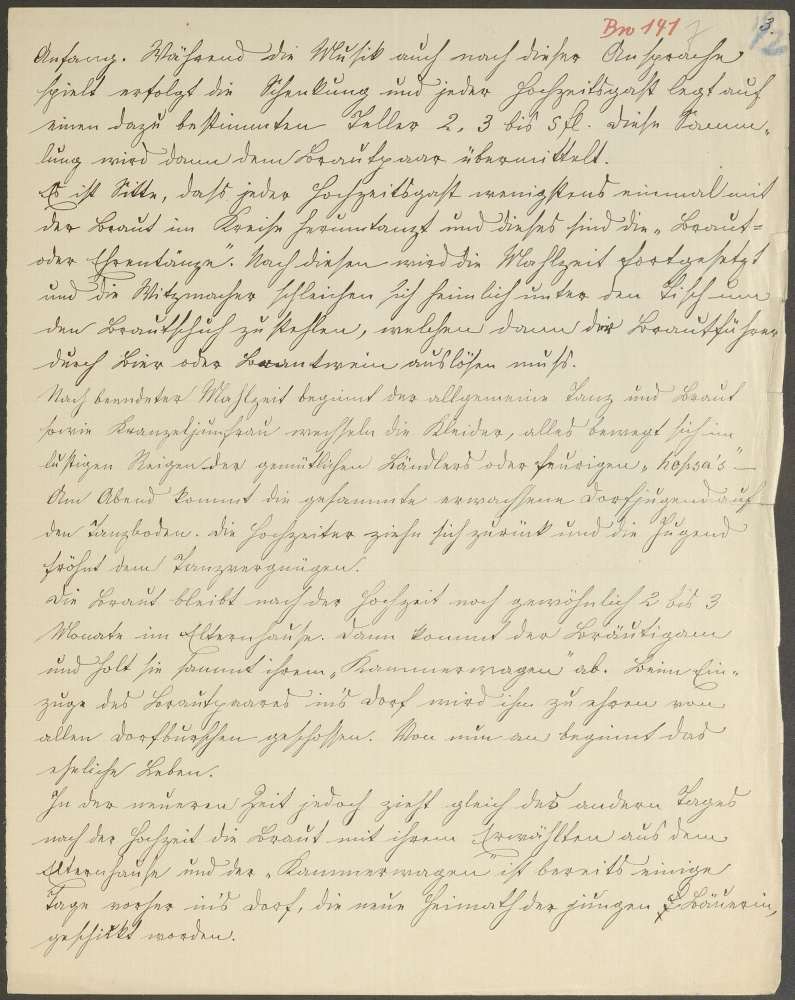 Bn 141
3.
12
Anfang. Während die Musik auch nach dieser Ansprache
spielt erfolgt die Schenkung und jeder Hochzeitsgast legt auf
einen dazu bestimmten Teller 2, 3 bis 5 fl. Diese Samm-
lung wird dann dem Brautpaar übermittelt.
Es ist Sitte, dass jeder Hochzeitsgast wenigstens einmal mit
der Braut im Kreise herumtanzt und dieses sind die „Braut-
oder Ehrentänze". Nach diesen wird die Mahlzeit fortgesetzt
und die Witzmacher schleichen sich heimlich unter den Tisch um
den Brautschuh zu stehlen, welchen dann der Brautführer
durch Bier oder Brantwein auslösen muss.
Nach beendeter Mahlzeit beginnt der allgemeine Tanz und Braut
sowie Kranzeljungfrau wechseln die Kleider, alles bewegt sich im
lustigen Reigen der gemütlichen Ländlers oder feurigen „hopsa's" –
Am Abend kommt die gesammte erwachsene Dorfjugend auf
den Tanzboden. Die Hochzeiter ziehn sich zurück und die Jugend
fröhnt dem Tanzvergnügen.
Die Braut bleibt nach der Hochzeit noch gewöhnlich 2 bis 3
Monate im Elternhause. Dann kommt der Bräutigam
und holt sie sammt ihrem „Kammerwagen" ab. Beim Ein-
zuge des Brautpaares in's Dorf wird ihm zu ehren von
allen Dorfburschen geschossen. Von nun an beginnt das
eheliche Leben.
In der neueren Zeit jedoch zieht gleich des andern Tages
nach der Hochzeit die Braut mit ihrem Erwählten aus dem
Elternhause und der „Kammerwagen" ist bereits einige
Tage vorher in's Dorf, die neue Heimath der jungen Bäuerin,
geschickt worden.